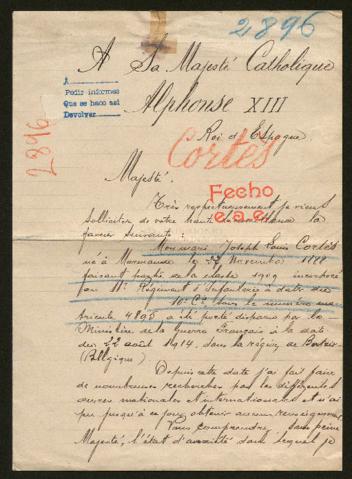 2896
A Sa Majesté Catholique
A
Pedir informes
Que se hace así
Devolver
Alphonse XIII
Roi d'Espagne
2896
Cortés
Majesté.
Fecho
e.a.e.
Très respectueusement je viens
solliciter de votre haute la
faveur suivante :
Mon mari Joseph Louis Cortès
né à Marmande le Novembre 1888
faisant partie de la classe 1909
au Régiment d'Infanterie à date du
10e Cie sous le numéro
4805 a été porté disparu par le
Ministère de la Guerre Français à la date
du 22 août 1914, dans la région de
(Belgique)
Depuis cette date j'ai fait faire
de nombreuses recherches par les différentes
œuvres nationales et internationales et n'ai
pu jusqu'à ce jour, obtenir aucun renseignement
Vous comprendrez sans peine
Majesté, l'état d'anxiété dans lequel je